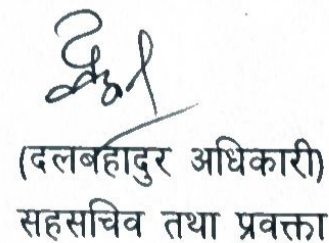 (दलबहादुर अधिकारी)
सहसचिव तथा प्रवक्ता